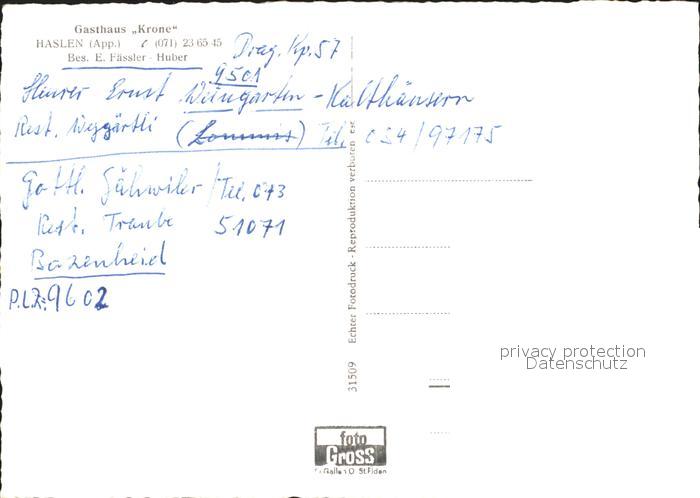 Gasthaus „Krone“
HASLEN (App.) (071) 23 65 45
Bes. E. Fässler - Huber
Drag. Kp. 57
9501
Ernst Weingarten - Kalthäusern
Rest. (Lommis) Tel. 054/97175
Gottl. Gähwiler / Tel. 073
Rest. Traube 51071
Bazenheid
P.L.Z.: 9602
Echter Fotodruck - Reproduktion verboten
31509
privacy protection
Datenschutz
foto
GROSS
St. Gallen O St. Fiden